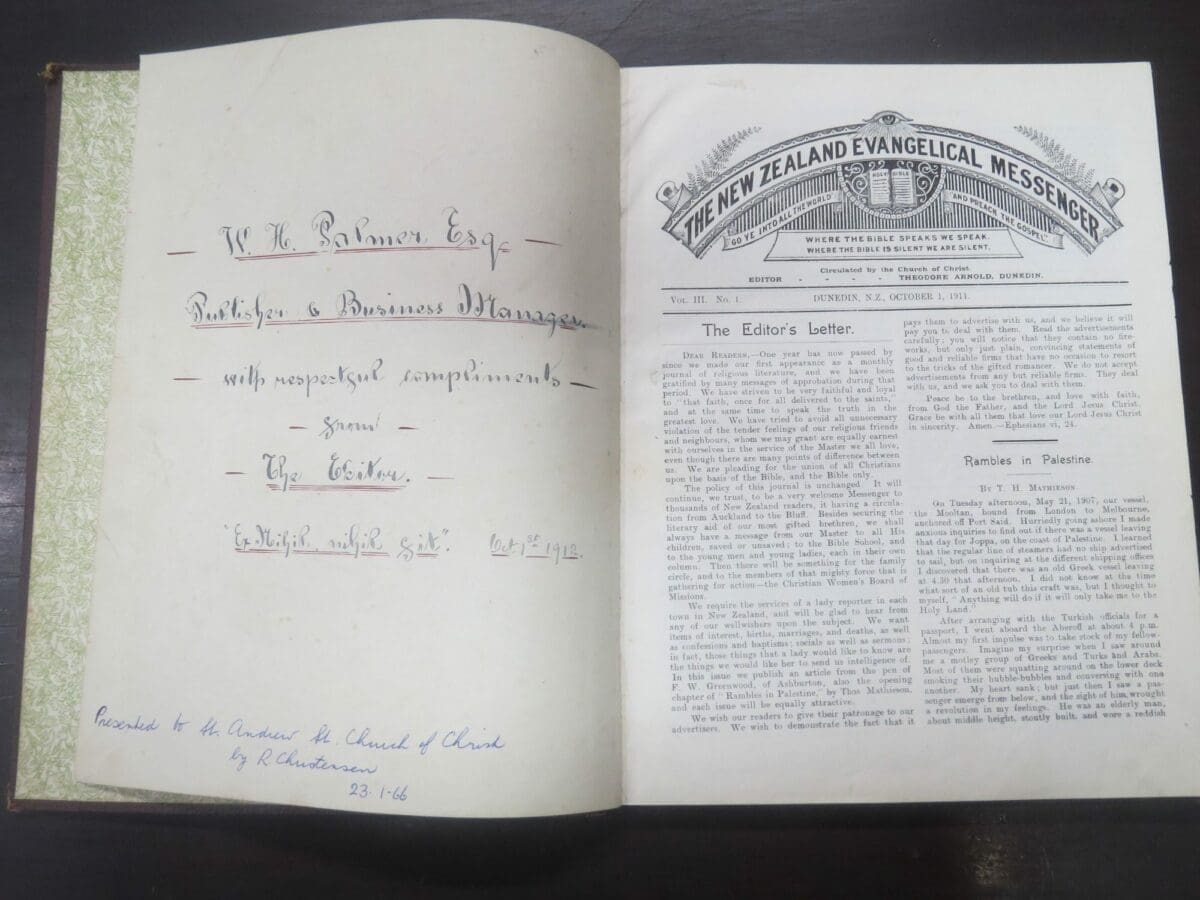 — W. H. Palmer Esq —
Publisher & Business Manager.
— with respectful compliments —
— from —
— The Editor. —
"Ex Nihilo nihil fit". Oct 1st 1912.
Presented to St. Andrew St. Church of Christ
by R. Christensen
23-1-66
THE NEW ZEALAND EVANGELICAL MESSENGER
HOLY BIBLE
"GO YE INTO ALL THE WORLD
AND PREACH THE GOSPEL"
WHERE THE BIBLE SPEAKS WE SPEAK.
WHERE THE BIBLE IS SILENT WE ARE SILENT.
Circulated by the Church of Christ
EDITOR - - - - THEODORE ARNOLD, DUNEDIN.
VOL. III. No. 1. DUNEDIN, N.Z., OCTOBER 1, 1911.
The Editor's Letter.
DEAR READERS,—One year has now passed by
since we made our first appearance as a monthly
journal of religious literature, and we have been
gratified by many messages of approbation during that
period. We have striven to be very faithful and loyal
to "that faith, once for all delivered to the saints,"
and at the same time to speak the truth in the
greatest love. We have tried to avoid all unnecessary
violation of the tender feelings of our religious friends
and neighbours, whom we may grant are equally earnest
with ourselves in the service of the Master we all love,
even though there are many points of difference between
us. We are pleading for the union of all Christians
upon the basis of the Bible, and the Bible only.
The policy of this journal is unchanged. It will
continue, we trust, to be a very welcome Messenger to
thousands of New Zealand readers, it having a circula-
tion from Auckland to the Bluff. Besides securing the
literary aid of our most gifted brethren, we shall
always have a message from our Master to all His
children, saved or unsaved: to the Bible School, and
to the young men and young ladies, each in their own
column. Then there will be something for the family
circle, and to the members of that mighty force that is
gathering for action—the Christian Women's Board of
Missions.
We require the services of a lady reporter in each
town in New Zealand, and will be glad to hear from
any of our wellwishers upon the subject. We want
items of interest, births, marriages, and deaths, as well
as confessions and baptisms; socials as well as sermons;
in fact, those things that a lady would like to know are
the things we would like her to send us intelligence of.
In this issue we publish an article from the pen of
F. W. Greenwood, of Ashburton, also the opening
chapter of "Rambles in Palestine," by Thos Mathieson.
and each issue will be equally attractive.
We wish our readers to give their patronage to our
advertisers. We wish to demonstrate the fact that it
pays them to advertise with us, and we believe it will
pay you to deal with them. Read the advertisements
carefully; you will notice that they contain no fire-
works, but only just plain, convincing statements of
good and reliable firms that have no occasion to resort
to the tricks of the gifted romancer. We do not accept
advertisements from any but reliable firms. They deal
with us, and we ask you to deal with them.
Peace be to the brethren, and love with faith,
from God the Father, and the Lord Jesus Christ.
Grace be with all them that love our Lord Jesus Christ
in sincerity. Amen.—Ephesians vi, 24.
Rambles in Palestine.
BY T. H. MATHIESON
On Tuesday afternoon, May 21, 1907, our vessel,
the Mooltan, bound from London to Melbourne,
anchored off Port Said. Hurriedly going ashore I made
anxious inquiries to find out if there was a vessel leaving
that day for Joppa, on the coast of Palestine. I learned
that the regular line of steamers had no ship advertised
to sail, but on inquiring at the different shipping offices
I discovered that there was an old Greek vessel leaving
at 4.30 that afternoon. I did not know at the time
what sort of an old tub this craft was, but I thought to
myself, "Anything will do if it will only take me to the
Holy Land."
After arranging with the Turkish officials for a
passport, I went aboard the Aberoff at about 4 p.m.
Almost my first impulse was to take stock of my fellow-
passengers. Imagine my surprise when I saw around
me a motley group of Greeks and Turks and Arabs.
Most of them were squatting around on the lower deck
smoking their hubble-bubbles and conversing with one
another. My heart sank; but just then I saw a pas-
senger emerge from below, and the sight of him wrought
a revolution in my feelings. He was an elderly man,
about middle height, stoutly built, and wore a reddish